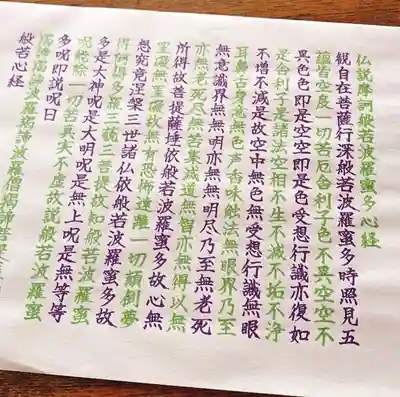 仏説摩訶般若波羅蜜多心経
観自在菩薩行深般若波羅蜜多時照見五
蘊皆空度一切苦厄舎利子色不異空空不
異色色即是空空即是色受想行識亦復如
是舎利子是諸法空相不生不滅不垢不浄
不増不減是故空中無色無受想行識無眼
耳鼻舌身意無色声香味触法無眼界乃至
無意識界無無明亦無無明尽乃至無老死
亦無老死尽無苦集滅道無智亦無得以無
所得故菩提薩埵依般若波羅蜜多故心無
罣礙無罣礙故無有恐怖遠離一切顛倒夢
想究竟涅槃三世諸仏依般若波羅蜜多故
得阿耨多羅三藐三菩提故知般若波羅蜜
多是大神呪是大明呪是無上呪是無等等
呪能除一切苦真実不虚故説般若波羅蜜
多呪即説呪曰
羯諦羯諦波羅羯諦波羅僧羯諦菩提
般若心経